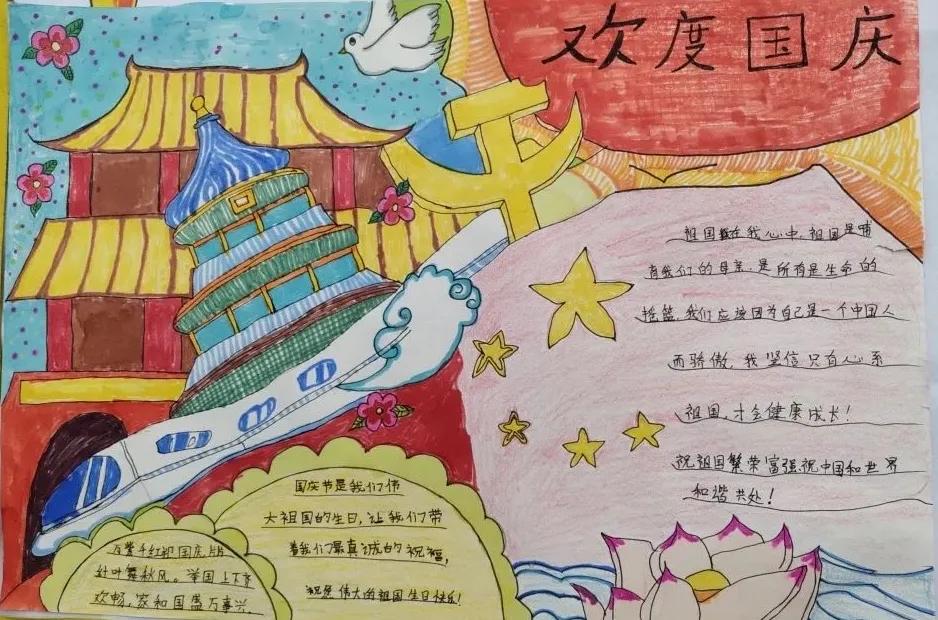 欢度国庆
祖国在我心中,祖国是哺
育我们的母亲,是所有是生命的
摇篮,我们应该因为自己是一个中国人
而骄傲,我坚信只有心系
祖国,才会健康成长!
祝祖国繁荣富强,祝中国和世界
和谐共处!
国庆节是我们伟
大祖国的生日,让我们带
着我们最真诚的祝福,
祝愿伟大的祖国生日快乐!
万紫千红迎国庆,
红叶舞秋风。举国上下齐
欢畅,家和国盛万事兴